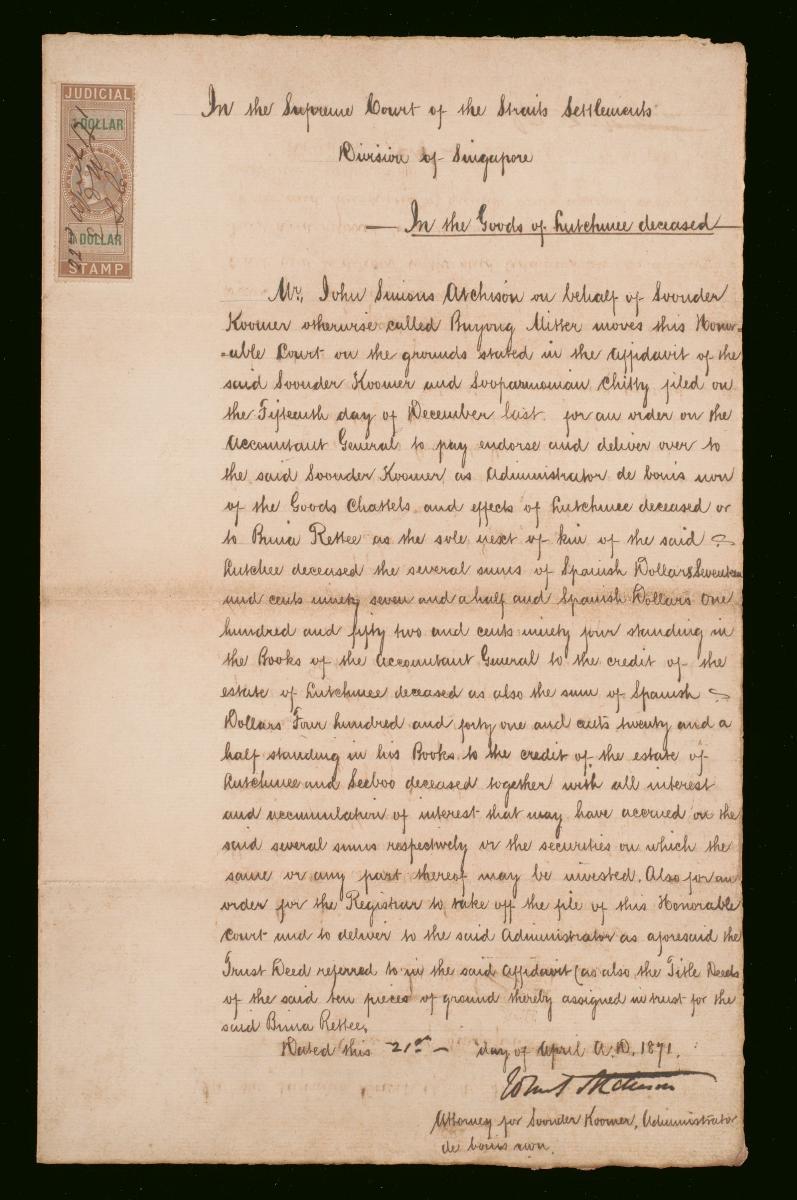 JUDICIAL
1 DOLLAR
1 DOLLAR
STAMP
In the Supreme Court of the Straits Settlements
Division of Singapore
In the Goods of Lutchmee deceased
Mr. John Simons Atchison on behalf of Soonder
Koomer otherwise called Buyong Mitter moves this Honor=
=able Court on the grounds stated in the Affidavit of the
said Soonder Koomer and Sooparmonian Chitty filed on
the Fifteenth day of December last for an order on the
Accountant General to pay endorse and deliver over to
the said Soonder Koomer as Administrator de bonis non
of the Goods Chattels and effects of Lutchmee deceased or
to Binia Rettee as the sole next of kin of the said
Lutchee deceased the several sums of Spanish Dollars Seventeen
and cents ninety seven and a half and Spanish Dollars One
hundred and fifty two and cents ninety four standing in
the Books of the Accountant General to the credit of the
estate of Lutchmee deceased as also the sum of Spanish
Dollars Four hundred and forty one and cents twenty and a
half standing in his Books to the credit of the estate of
Lutchmee and Seeboo deceased together with all interest
and accumulation of interest that may have accrued on the
said several sums respectively or the securities on which the
same or any part thereof may be invested. Also for an
order for the Registrar to take off the file of this Honorable
Court and to deliver to the said Administrator as aforesaid the
Trust Deed referred to in the said Affidavit (as also the Title Deeds
of the said ten pieces of ground thereby assigned in trust for the
said Binia Rettee.
Dated this 21st day of April A.D. 1871.
John S Atchison
Attorney for Soonder Koomer, Administrator
de bonis non.